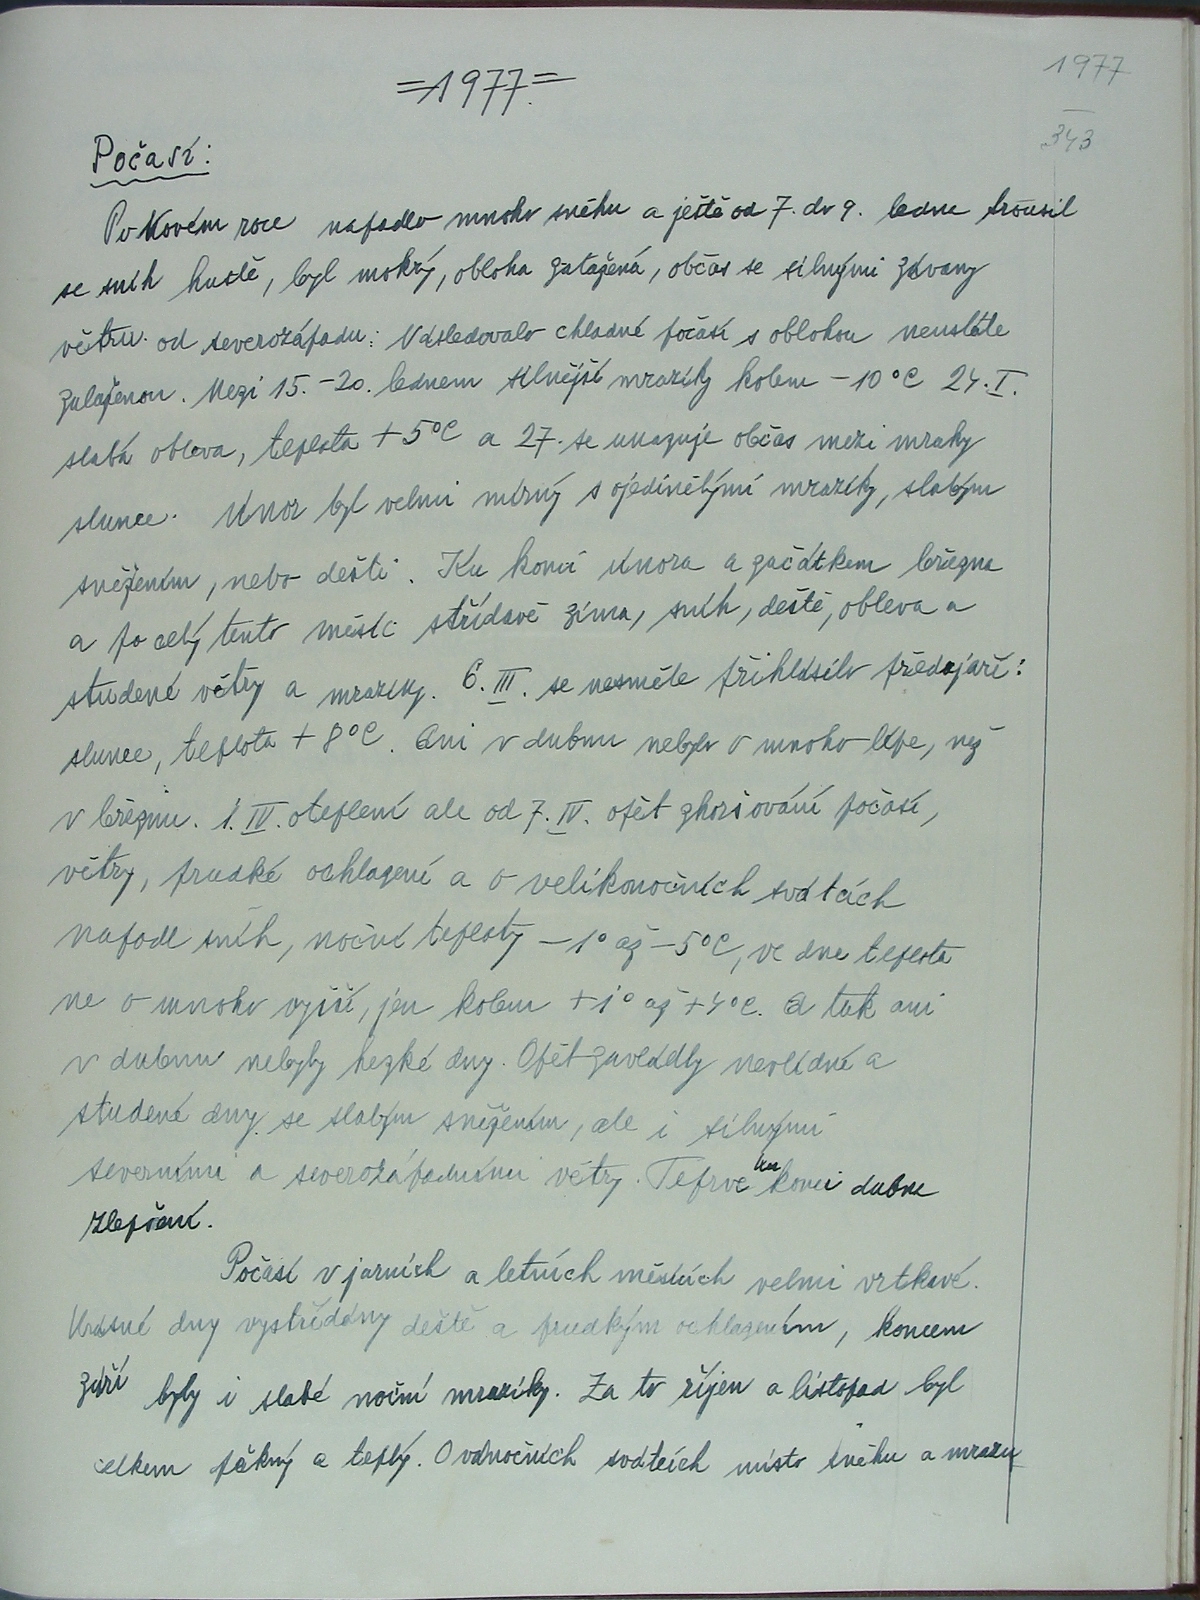 =1977=
1977
343
Počasí:
Po Novém roce napadlo mnoho sněhu a ještě od 7. do 9. ledna trousil
se sníh hustě, byl mokrý, obloha zatažená, občas se silnými závany
větru od severozápadu: Následovalo chladné počasí s oblohou neustále
zataženou. Mezi 15.-20. lednem silnější mrazíky kolem -10°C 24.I.
slabá obleva, teplota +5°C a 27. se ukazuje občas mezi mraky
slunce. Únor byl velmi mírný s ojedinělými mrazíky, slabým
sněžením, nebo dešti. Ku konci února a začátkem března
a po celý tento měsíc střídavě zima, sníh, deště, obleva a
studené větry a mrazíky. 6.III. se nesměle přihlásilo předjaří:
slunce, teplota +8°C. Ani v dubnu nebylo o mnoho lépe, než
v březnu. 1.IV. oteplení ale od 7.IV. opět zhoršování počasí,
větry, prudké ochlazení a o velikonočních svátcích
napadl sníh, noční teploty -1° až -5°C, ve dne teplota
ne o mnoho vyšší, jen kolem +1° až +4°C. A tak ani
v dubnu nebyly hezké dny. Opět zavládly nevlídné a
studené dny se slabým sněžením, ale i silnými
severními a severozápadními větry. Teprve ku konci dubna
zlepšení.
Počasí v jarních a letních měsících velmi vrtkavé.
Krásné dny vystřídány deště a prudkým ochlazením, koncem
září byly i slabé noční mrazíky. Za to říjen a listopad byl
celkem pěkný a teplý. O vánočních svátcích místo sněhu a mrazu